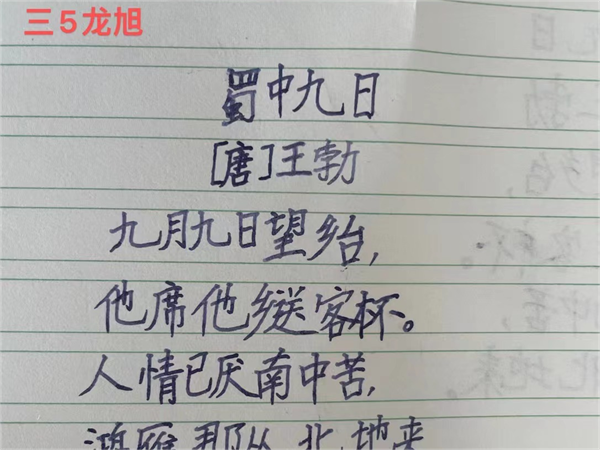 三5龙旭
蜀中九日
[唐]王勃
九月九日望乡台,
他席他乡送客杯。
人情已厌南中苦,
鸿雁那从北地来